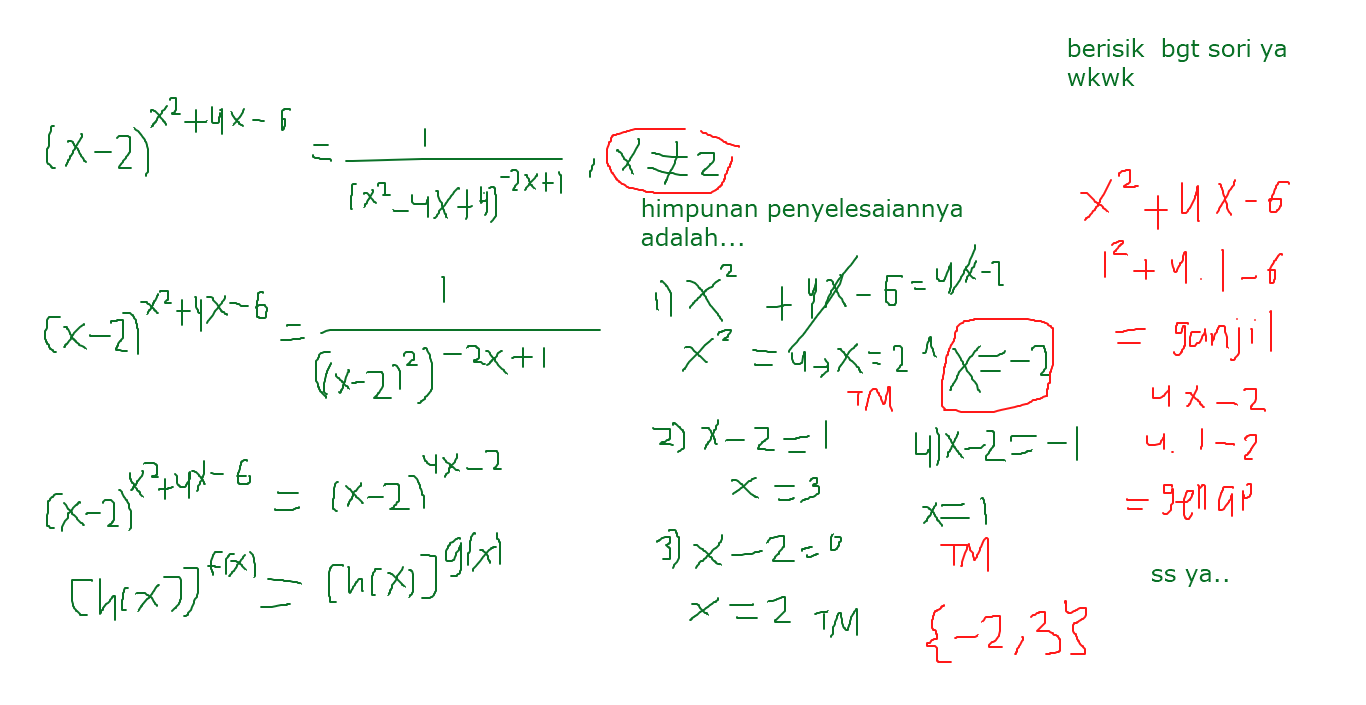 berisik bgt sori ya
wkwk
(x-2)^{x²+4x-6} = 1/(x²-4x+4)^{-2x+1}, x≠2
himpunan penyelesaiannya
adalah...
(x-2)^{x²+4x-6} = 1/((x-2)²)^{-2x+1}
(x-2)^{x²+4x-6} = (x-2)^{4x-2}
[h(x)]^{f(x)} = [h(x)]^{g(x)}
1) x² + 4x - 6 = 4x-2
x² = 4 → x = 2 ^ x = -2
TM
2) x - 2 = 1
x = 3
3) x - 2 = 0
x = 2 TM
4) x-2 = -1
x = 1
TM
{-2, 3}
x² + 4x - 6
1² + 4. 1 - 6
= ganjil
4x - 2
4. 1 - 2
= genap
ss ya..